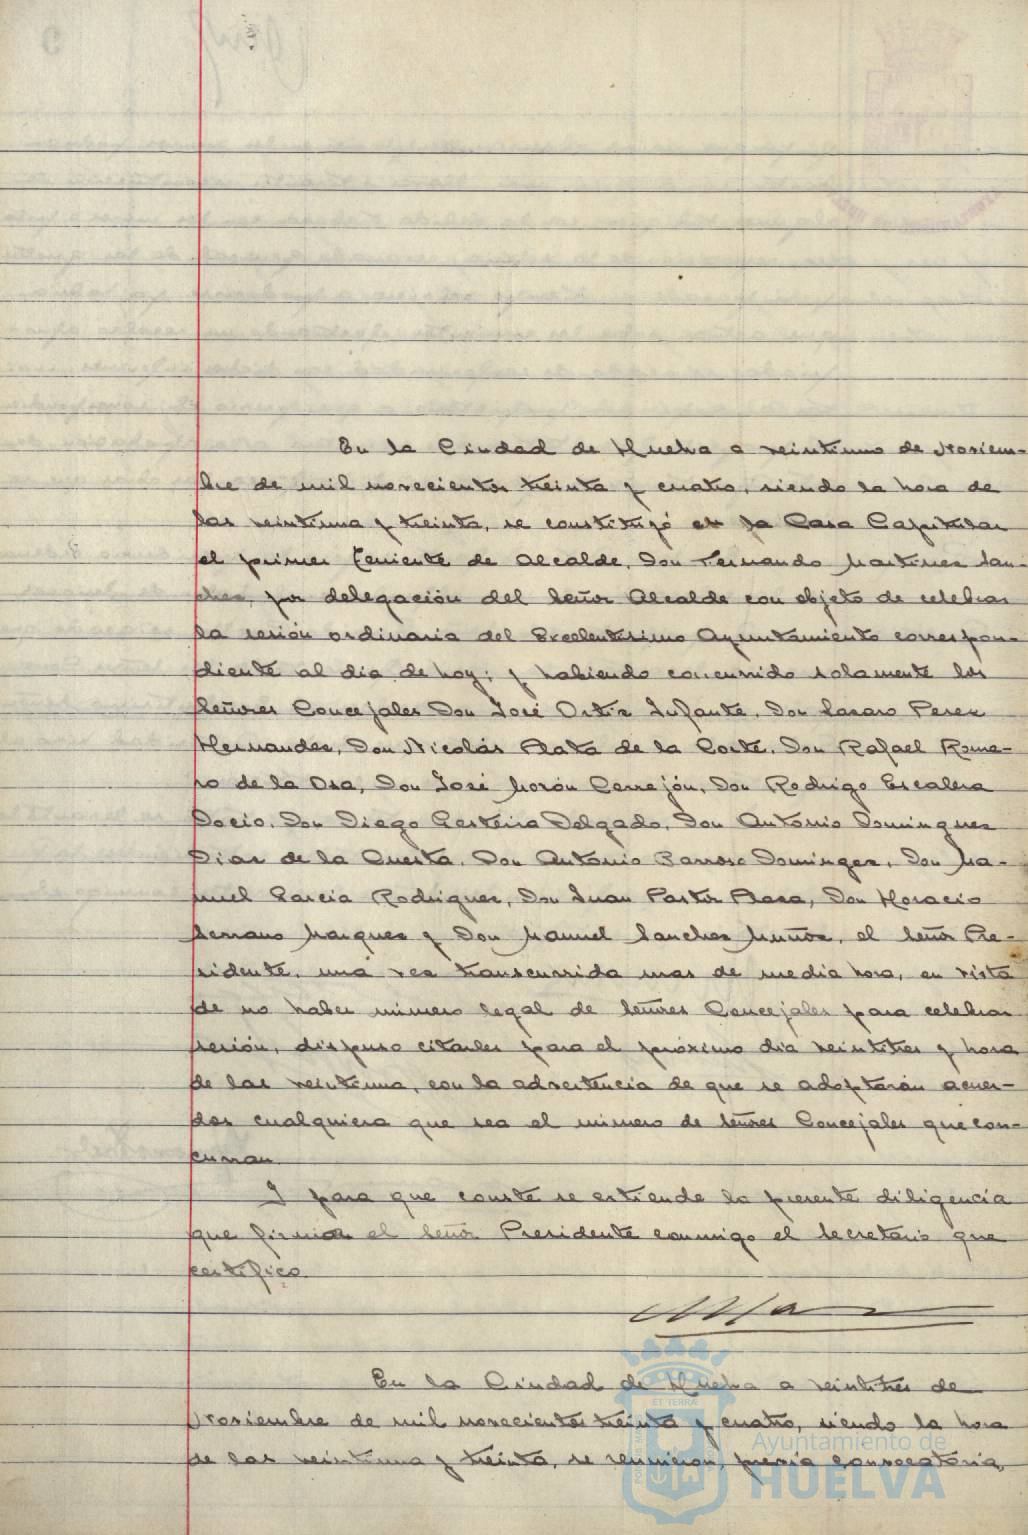 En la Ciudad de Huelva a veintiuno de Noviem-
bre de mil novecientos treinta y cuatro, siendo la hora de
las veintiuna y treinta, se constituyó en la Casa Capitular
el primer Teniente de Alcalde, Don Fernando Martinez San-
chez, por delegación del Señor Alcalde con objeto de celebrar
la sesión ordinaria del Excelentisimo Ayuntamiento correspon-
diente al dia de hoy; y habiendo concurrido solamente los
Señores Concejales Don José Ortiz Infante, Don Lazaro Perez
Hernandez, Don Nicolás Plata de la Corte, Don Rafael Rome-
ro de la Osa, Don José Morón Cerrejón, Don Rodrigo Escalera
Docio, Don Diego Delgado, Don Antonio Dominguez
Diaz de la Cuesta, Don Antonio Barroso Dominguez, Don Ma-
nuel Garcia Rodriguez, Don Juan Pastor Plaza, Don Horacio
Serrano Marquez y Don Manuel Sanchez Muñoz, el Señor Pre-
sidente, una vez transcurrida mas de media hora, en vista
de no haber número legal de Señores Concejales para celebrar
sesión, dispuso citarles para el próximo dia veintitres y hora
de las veintiuna, con la advertencia de que se adoptarán acuer-
dos cualquiera que sea el número de Señores Concejales que con-
curran.
Y para que conste se extiende la presente diligencia
que firma el Señor Presidente conmigo el Secretario que
certifico.
En la Ciudad de Huelva a veintitres de
Noviembre de mil novecientos treinta y cuatro, siendo la hora
de las veintiuna y treinta, se reunieron, previa convocatoria,
Ayuntamiento de
HUELVA